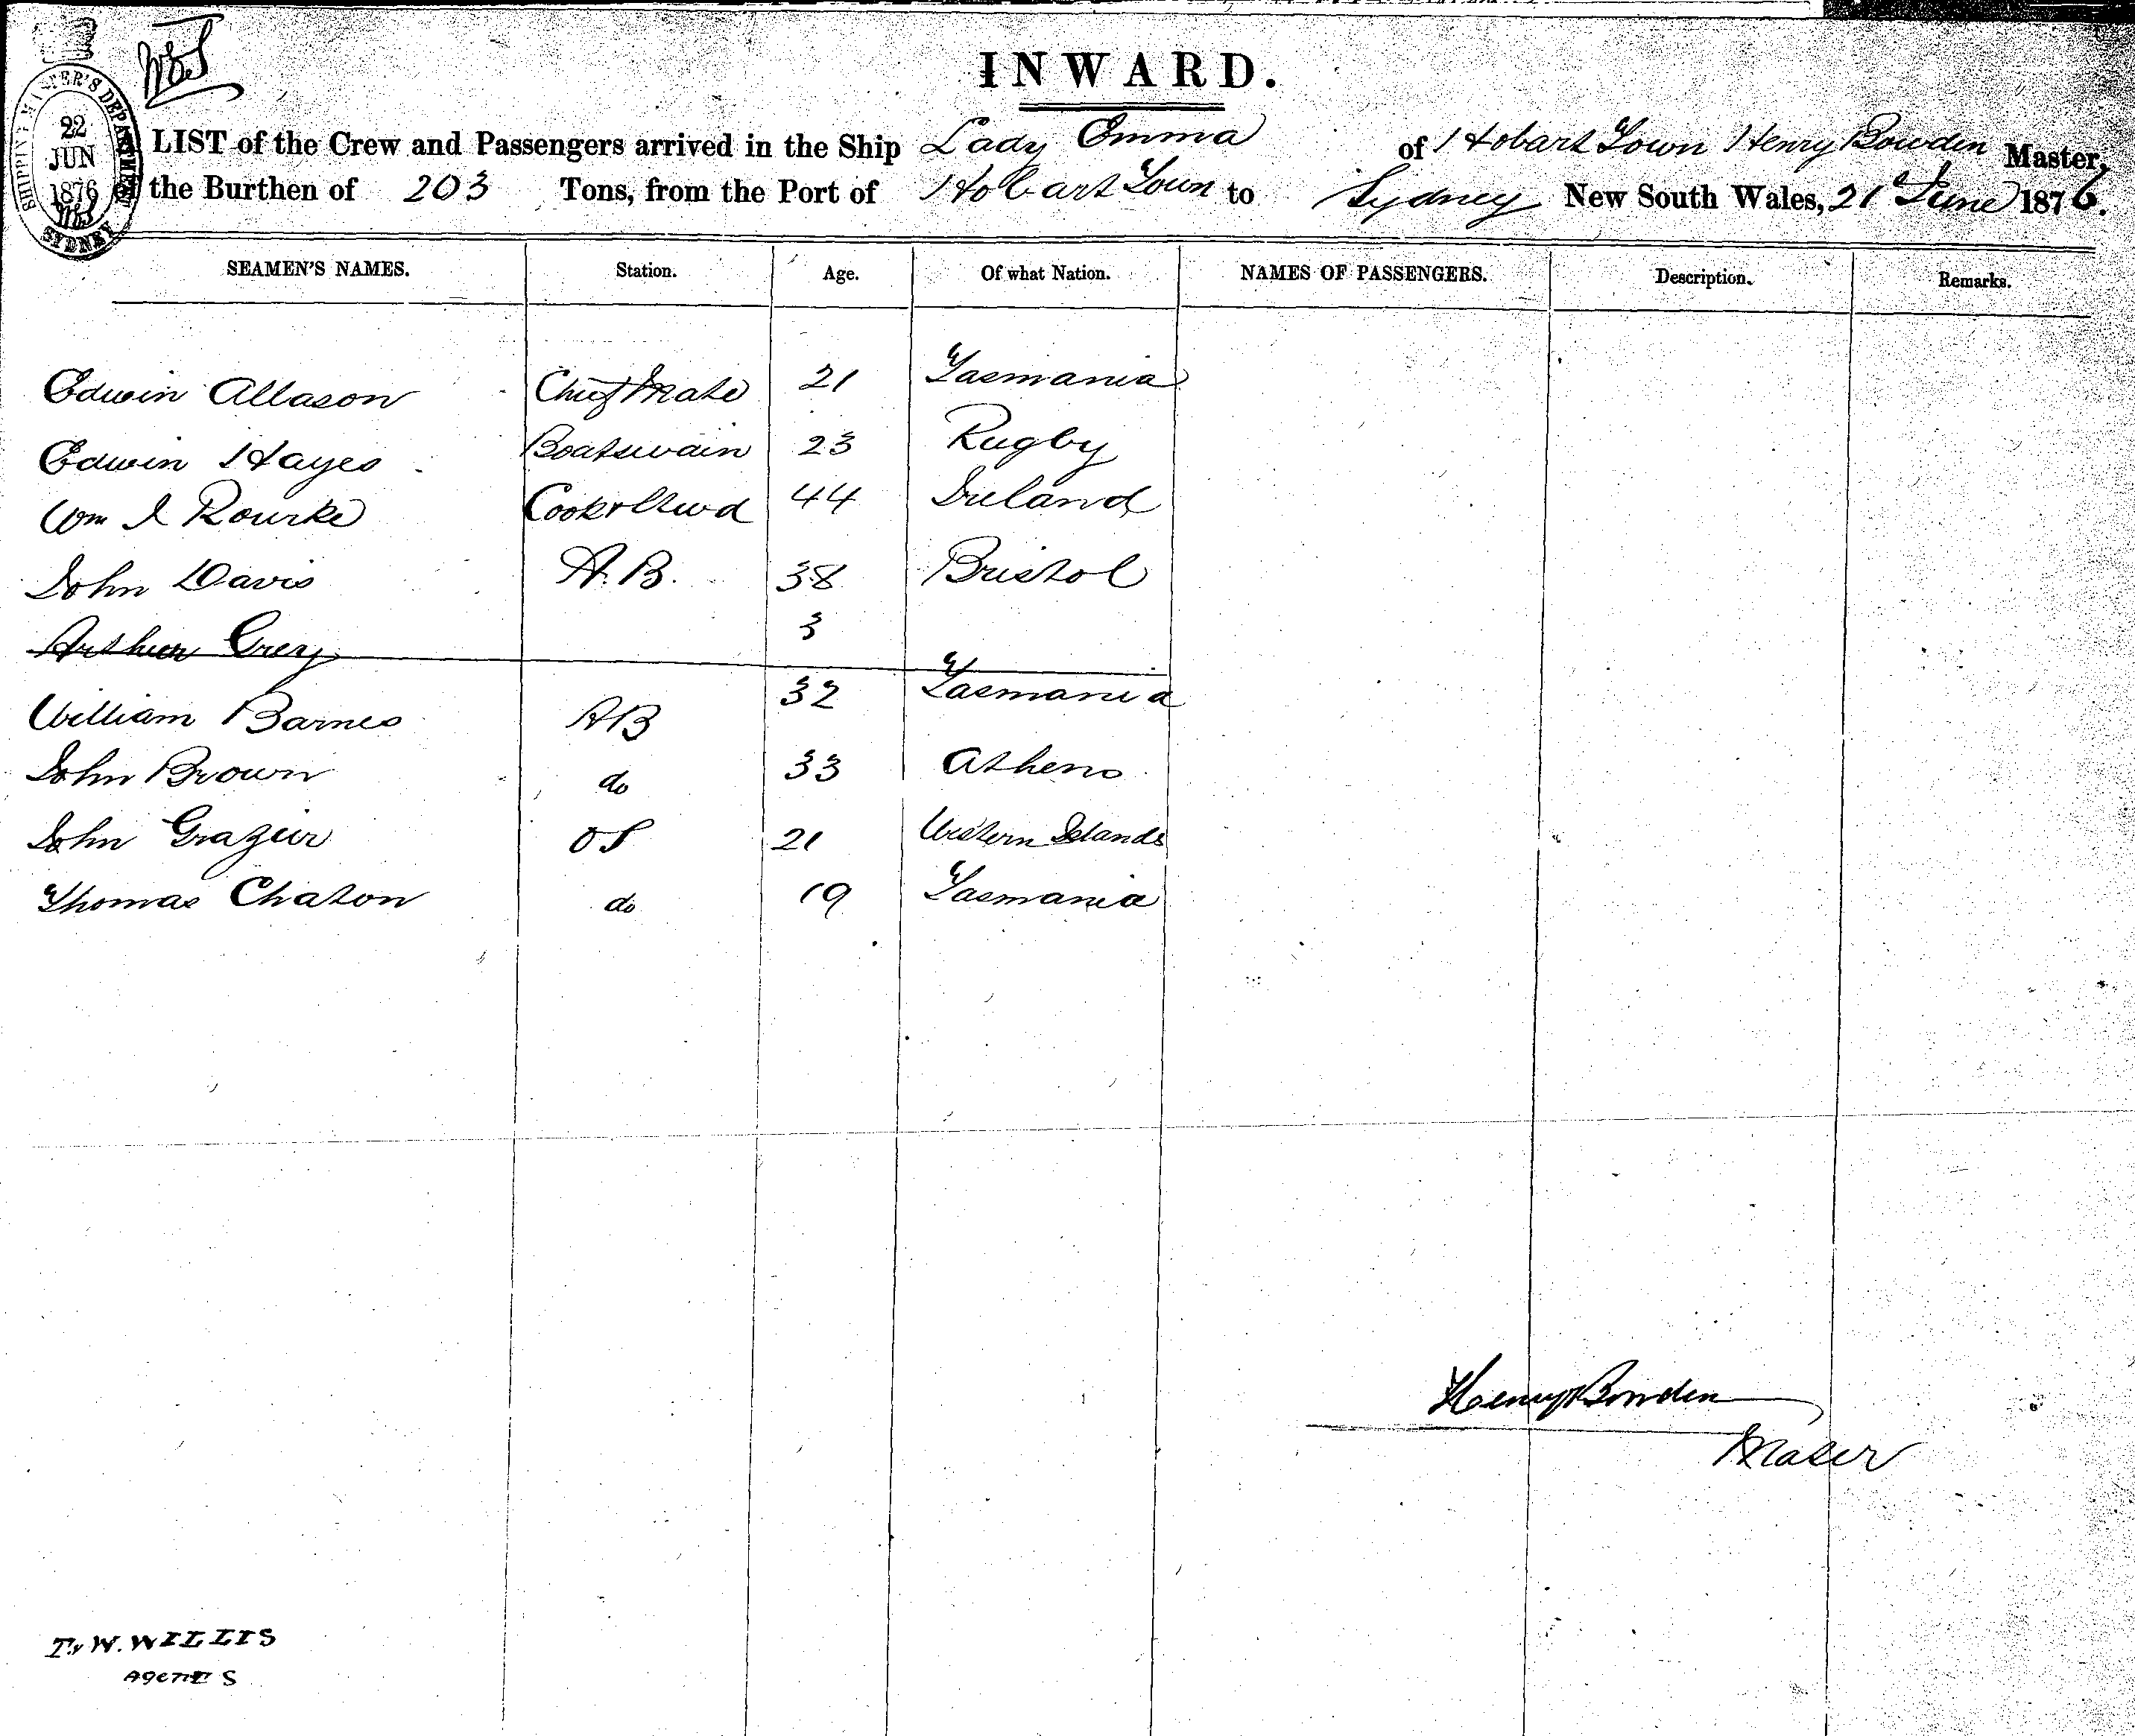 INWARD.
SHIPPING MASTER'S DEPARTMENT
22
JUN
1876
SYDNEY
LIST of the Crew and Passengers arrived in the Ship Lady Emma of Hobart Town Henry Bowden Master,
of the Burthen of 203 Tons, from the Port of Hobart Town to Sydney New South Wales, 21st June 1876.
SEAMEN'S NAMES. Station. Age. Of what Nation. NAMES OF PASSENGERS. Description. Remarks.
Edwin Allason Chief Mate 21 Tasmania
Edwin Hayes Boatswain 23 Rugby
Wm I Rourke Cook & Stwd 44 Ireland
John Davis A.B. 38 Bristol
Arthur Grey 3
William Barnes AB 32 Tasmania
John Brown do 33 Athens
John Grazier OS 21 Western Islands
Thomas Chaton do 19 Tasmania
Henry Bowden
Master
T & W. WILLIS
AGENTS